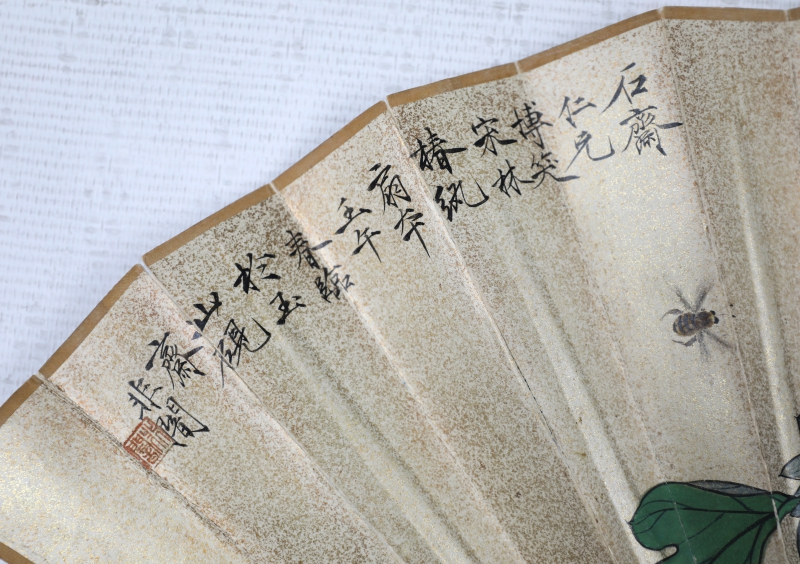 石齋
仁兄
博笑
宋林
椿紈
扇本
壬午
春臨
於玉
山硯
齋
非闇